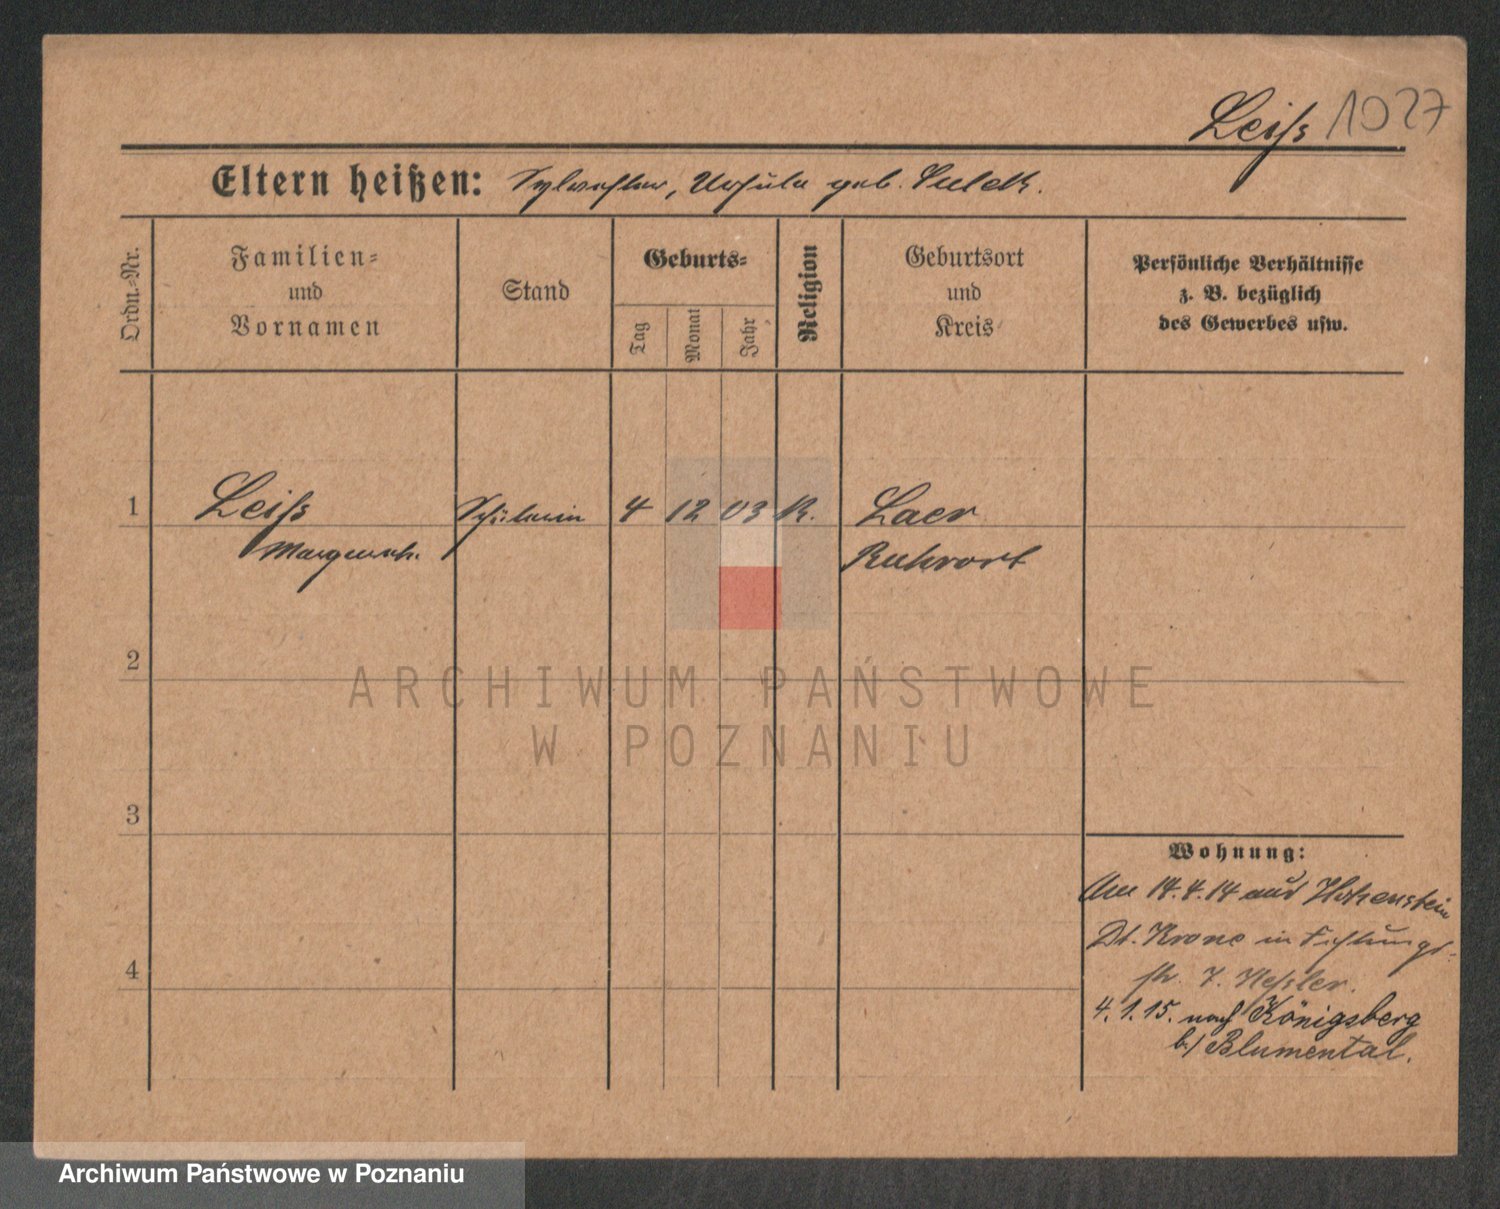 Leiß 1027
Eltern heißen: Sylvester, Ursula geb. Sulek.
Ordn.-Nr.
Familien-
und
Vornamen
Stand
Geburts-
Tag
Monat
Jahr
Religion
Geburtsort
und
Kreis
Persönliche Verhältnisse
z. B. bezüglich
des Gewerbes usw.
1
Leiß Schülerin 4 12 03 K. Laer
Margareth. Ruhrort
2
ARCHIWUM PAŃSTWOWE
W POZNANIU
3
Wohnung:
Am 14.4.14 aus Hohenstein
Dt. Krone in
str. 7.
4
4.1.15. nach Königsberg
b/ Blumental.
Archiwum Państwowe w Poznaniu